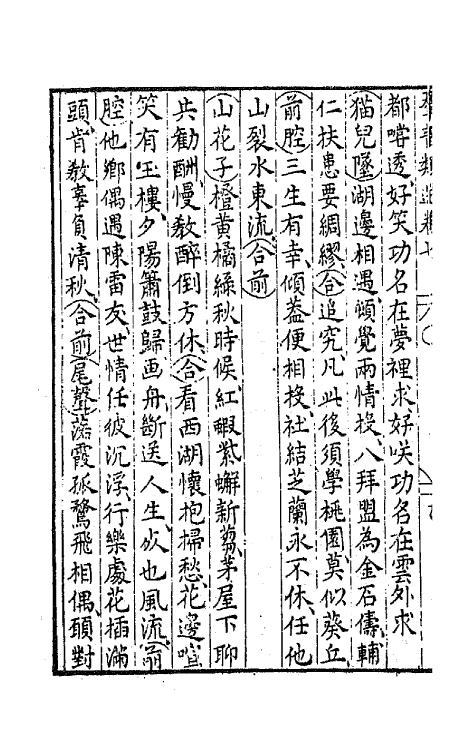 都嘗透、好笑功名在夢裡求、好笑功名在雲外求
猫兒墜湖邊相遇、頓覺兩情投、八拜盟為金石儔、輔
仁扶患要綢繆、合追究、凡此後須學桃園、莫似葵丘
前腔三生有幸、傾蓋便相投、社結芝蘭永不休、任他
山裂水東流、合前
山花子橙黃橘綠秋時候、紅蝦紫蠏新蒭、茅屋下聊
共勸酬、慢教醉倒方休、合看西湖懷抱掃愁、花邊喧
笑有玉樓、夕陽簫鼓歸画舟、斷送人生、必也風流、前
腔他鄉偶遇陳雷友、世情任彼沉浮、行樂處花插滿
頭、肯教辜負清秋、合前尾聲落霞孤鶩飛相偶、頭對